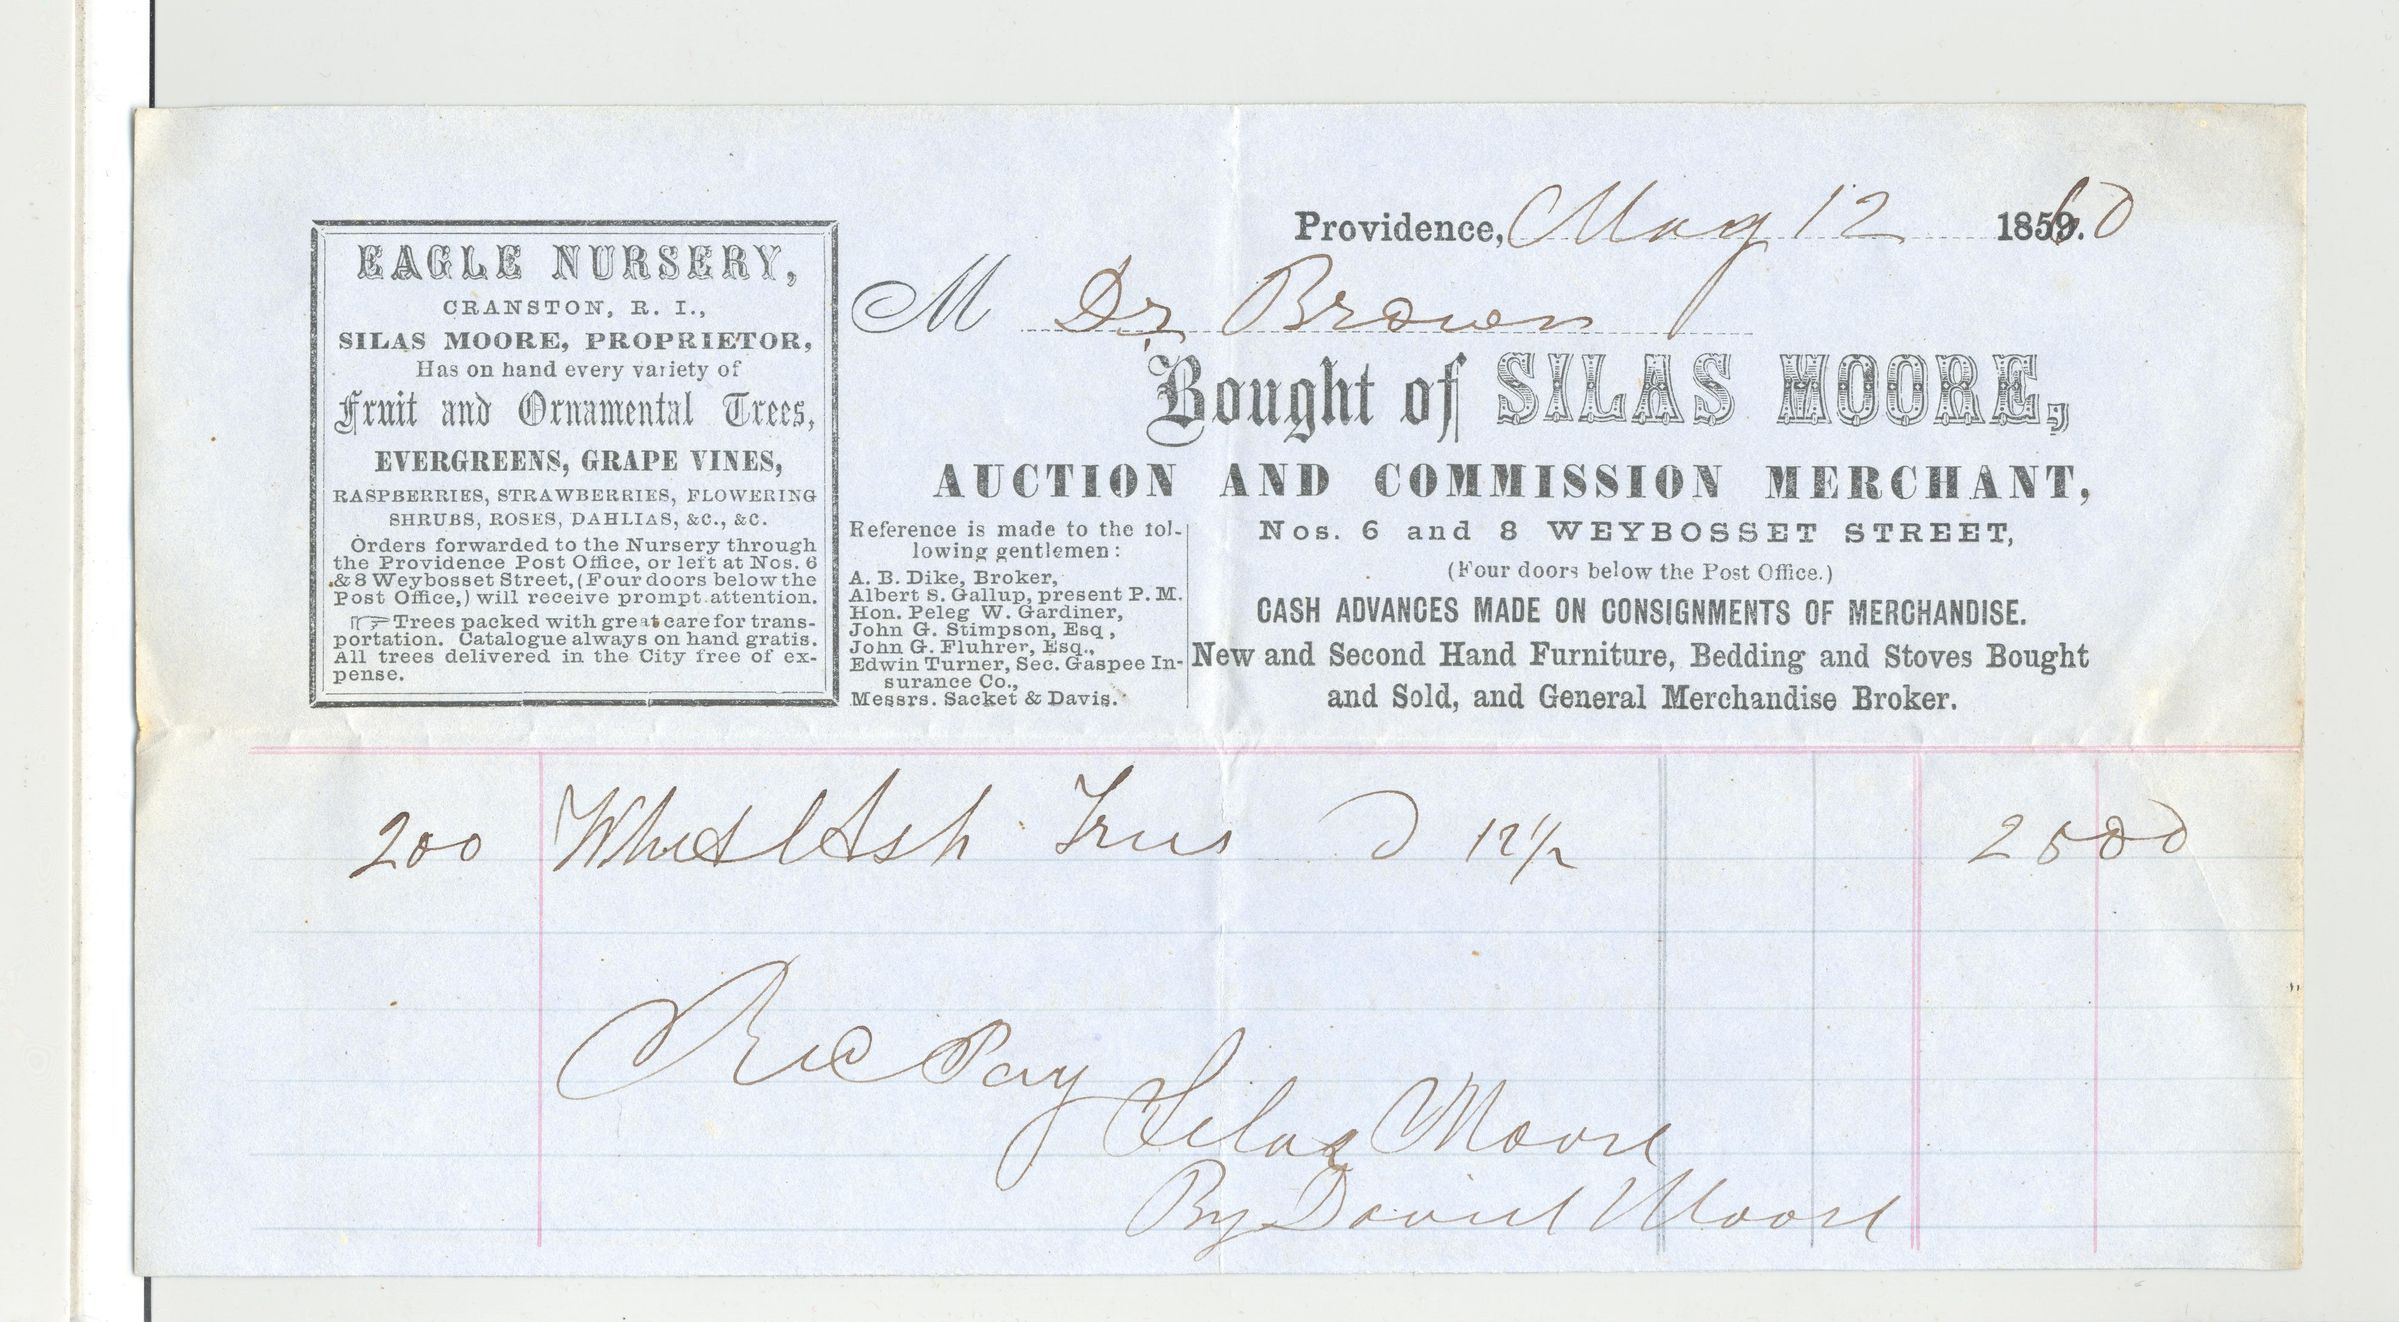 Providence, May 12 1860
M Dr Brown
Bought of SILAS MOORE,
AUCTION AND COMMISSION MERCHANT,
Nos. 6 and 8 WEYBOSSET STREET,
(Four doors below the Post Office.)
CASH ADVANCES MADE ON CONSIGNMENTS OF MERCHANDISE.
New and Second Hand Furniture, Bedding and Stoves Bought
and Sold, and General Merchandise Broker.
EAGLE NURSERY,
CRANSTON, R. I.,
SILAS MOORE, PROPRIETOR,
Has on hand every variety of
Fruit and Ornamental Trees,
EVERGREENS, GRAPE VINES,
RASPBERRIES, STRAWBERRIES, FLOWERING
SHRUBS, ROSES, DAHLIAS, &C., &C.
Orders forwarded to the Nursery through
the Providence Post Office, or left at Nos. 6
& 8 Weybosset Street, (Four doors below the
Post Office,) will receive prompt attention.
☞ Trees packed with great care for trans-
portation. Catalogue always on hand gratis.
All trees delivered in the City free of ex-
pense.
Reference is made to the fol-
lowing gentlemen:
A. B. Dike, Broker,
Albert S. Gallup, present P. M.
Hon. Peleg W. Gardiner,
John G. Stimpson, Esq,
John G. Fluhrer, Esq.,
Edwin Turner, Sec. Gaspee In-
surance Co.,
Messrs. Sacket & Davis.
200 Ash Trees 12½ 25 00
Rec Pay
Silas Moore
By David Moore